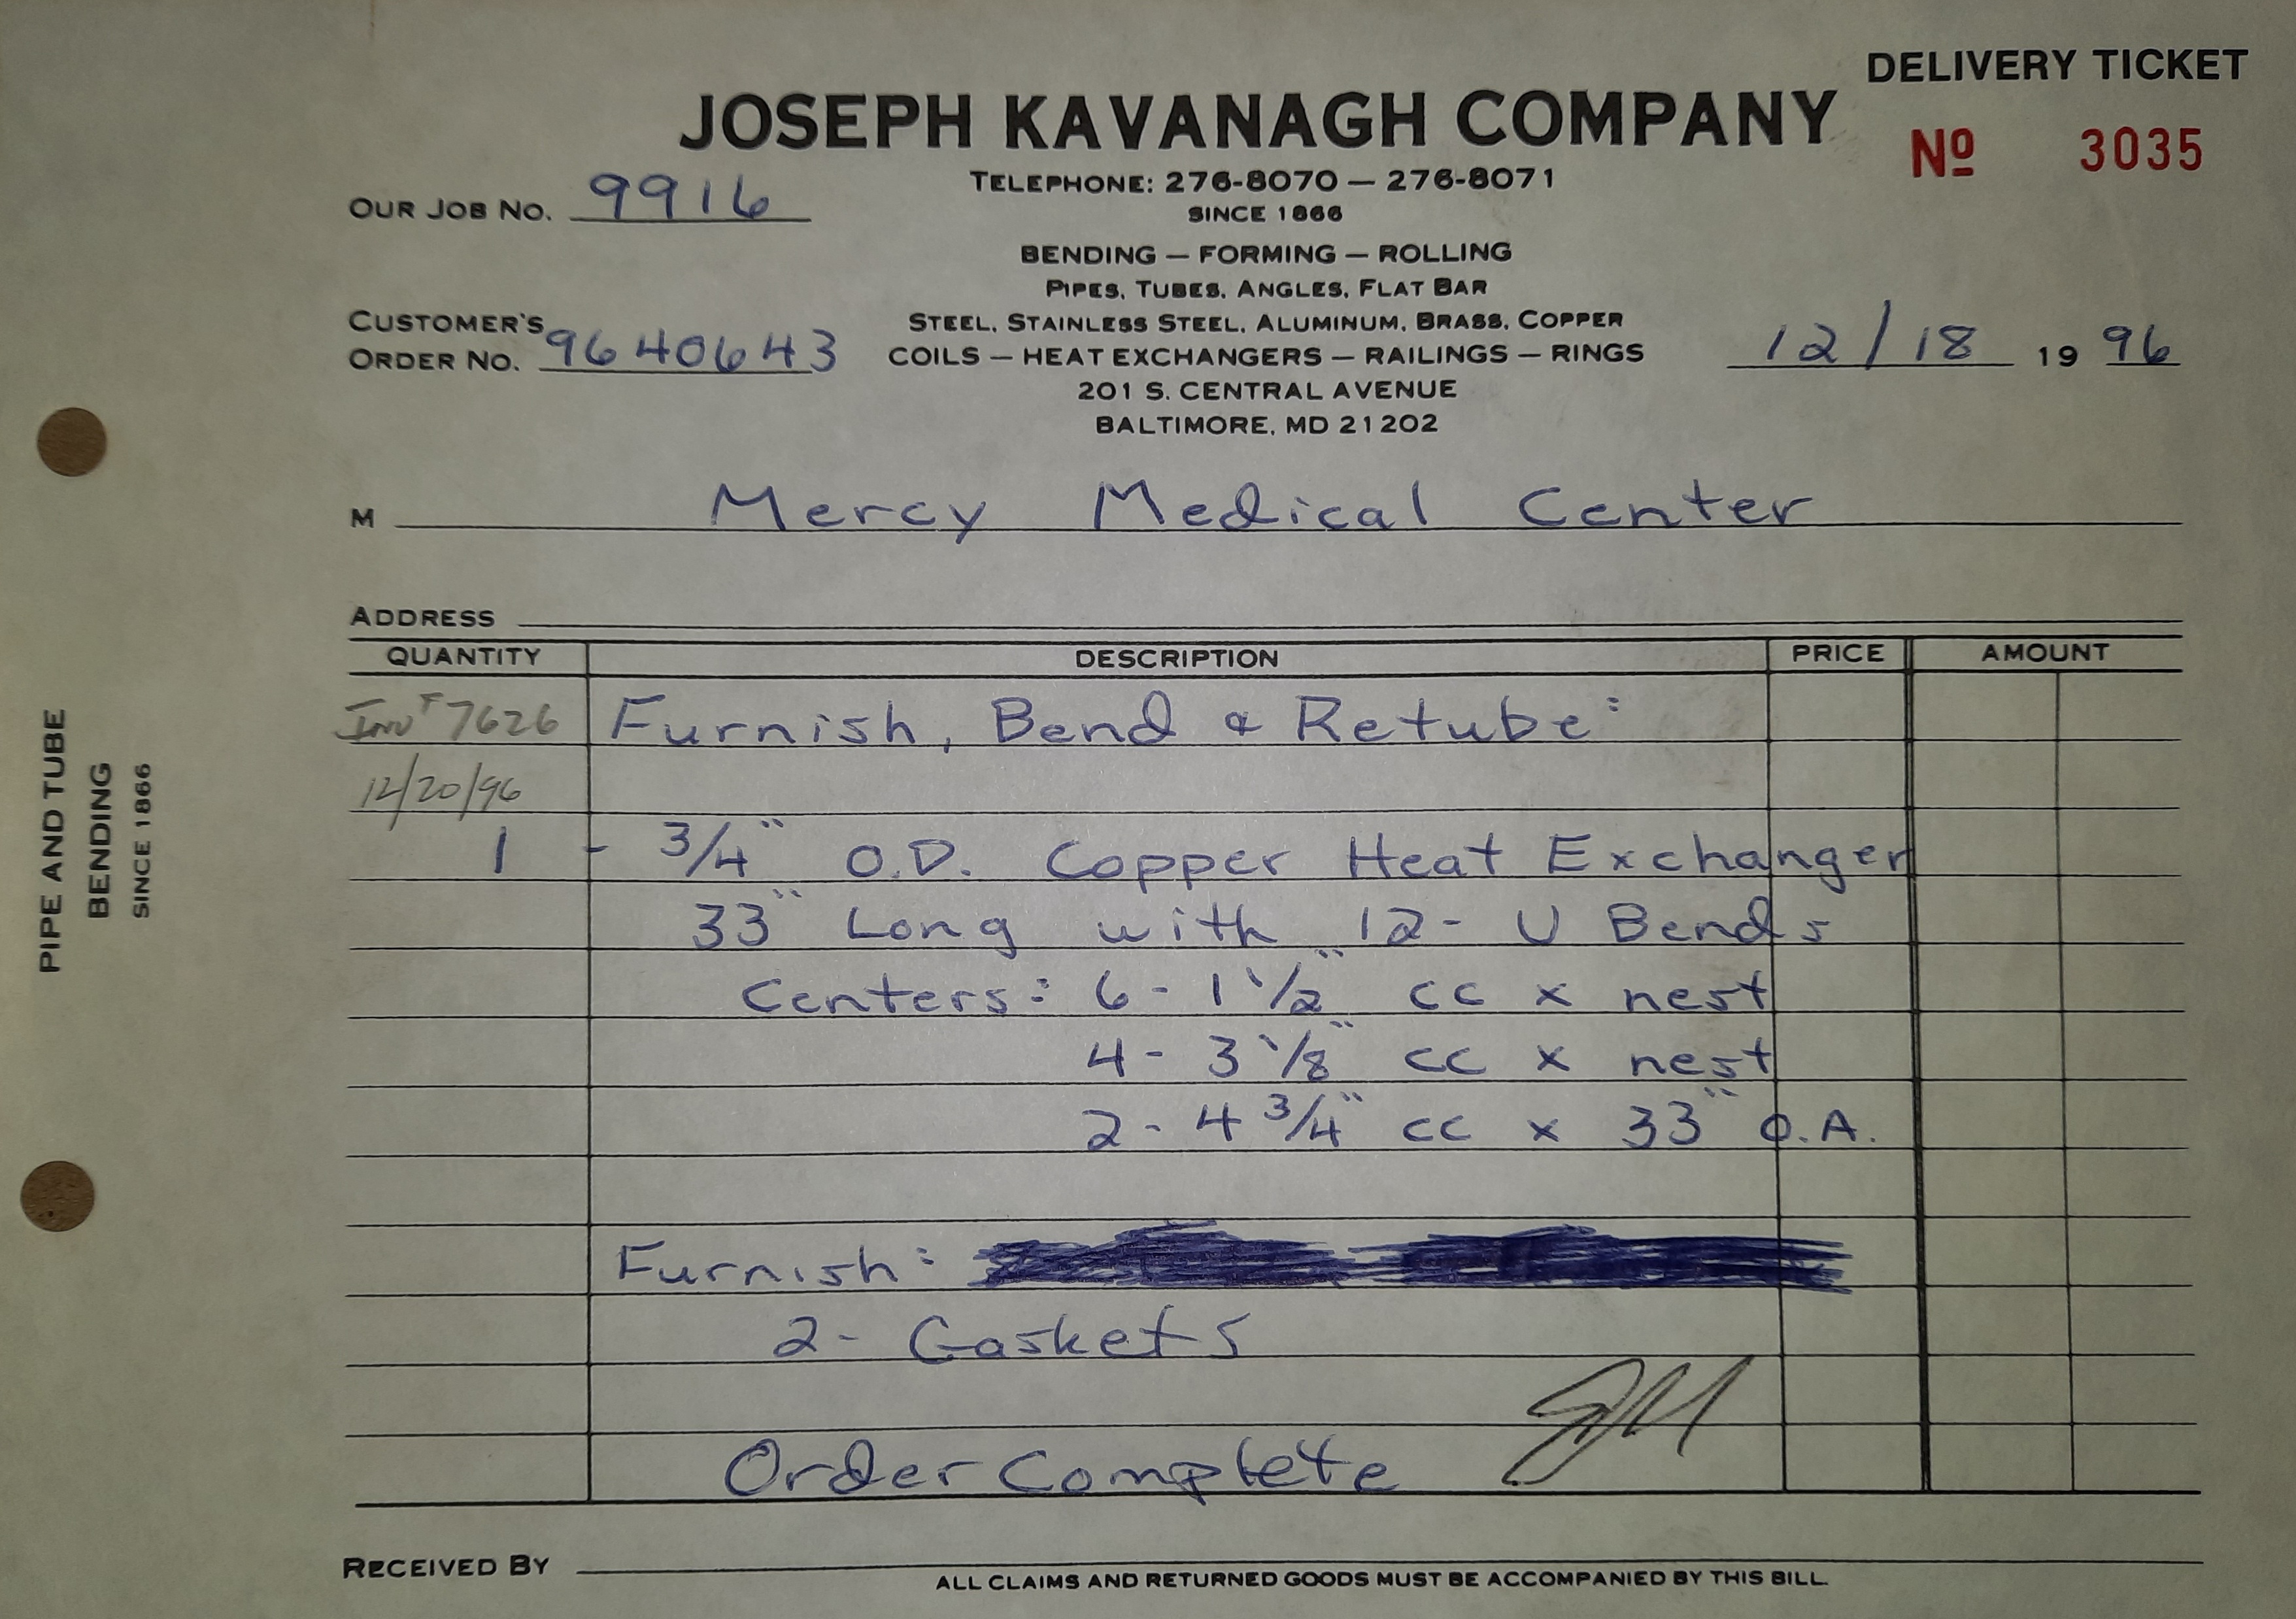 DELIVERY TICKET
JOSEPH KAVANAGH COMPANY
Nº 3035
TELEPHONE: 276-8070 — 276-8071
OUR JOB NO. 9916
SINCE 1866
BENDING — FORMING — ROLLING
PIPES, TUBES, ANGLES, FLAT BAR
CUSTOMER'S
ORDER NO. 9640643
STEEL, STAINLESS STEEL, ALUMINUM, BRASS, COPPER
COILS — HEAT EXCHANGERS — RAILINGS — RINGS
12/18 19 96
201 S. CENTRAL AVENUE
BALTIMORE, MD 21202
M Mercy Medical Center
ADDRESS
QUANTITY DESCRIPTION PRICE AMOUNT
Inv # 7626 Furnish, Bend & Retube:
12/20/96
1 - 3/4" O.D. Copper Heat Exchanger
33" Long with 12- U Bends
Centers: 6 - 1 1/2" cc x nest
4 - 3 1/8" cc x nest
2 - 4 3/4" cc x 33" O.A.
Furnish:
2 - Gaskets
Order Complete
RECEIVED BY
ALL CLAIMS AND RETURNED GOODS MUST BE ACCOMPANIED BY THIS BILL.
PIPE AND TUBE
BENDING
SINCE 1866